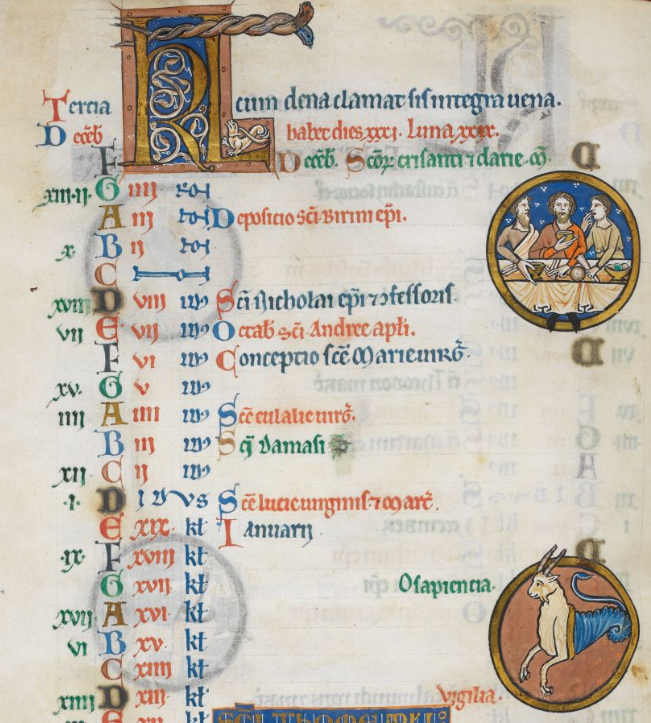 KL
Tercia cum dena clamat sis integra uena.
Deceb habet dies xxxj. Luna xxx.
F Deceb. Scor crisanti 7 darie. m̄
xiii·ij G iiij noī
A iij noī Deposicio sci Birini epi.
x B ij noī
C
xviii D viij id9 Sci Nicholai epi 7 ꝯfessoris
vij E vij id9 Octab sci Andree apli.
F vi id9 Conceptio scē Marie uirg.
xv G v id9
iiij A iiij id9 Scē eulalie uirg.
B iij id9 Sci Damasi
xij C ij id9
i D Idvs Scē lucie uirginis 7 mar̄
E xix kł Ianuarij
ix F xviij kł
G xvij kł O sapiencia.
xvij A xvi kł
vi B xv kł
C xiiij kł
xiiij D xiij kł Vigilia.